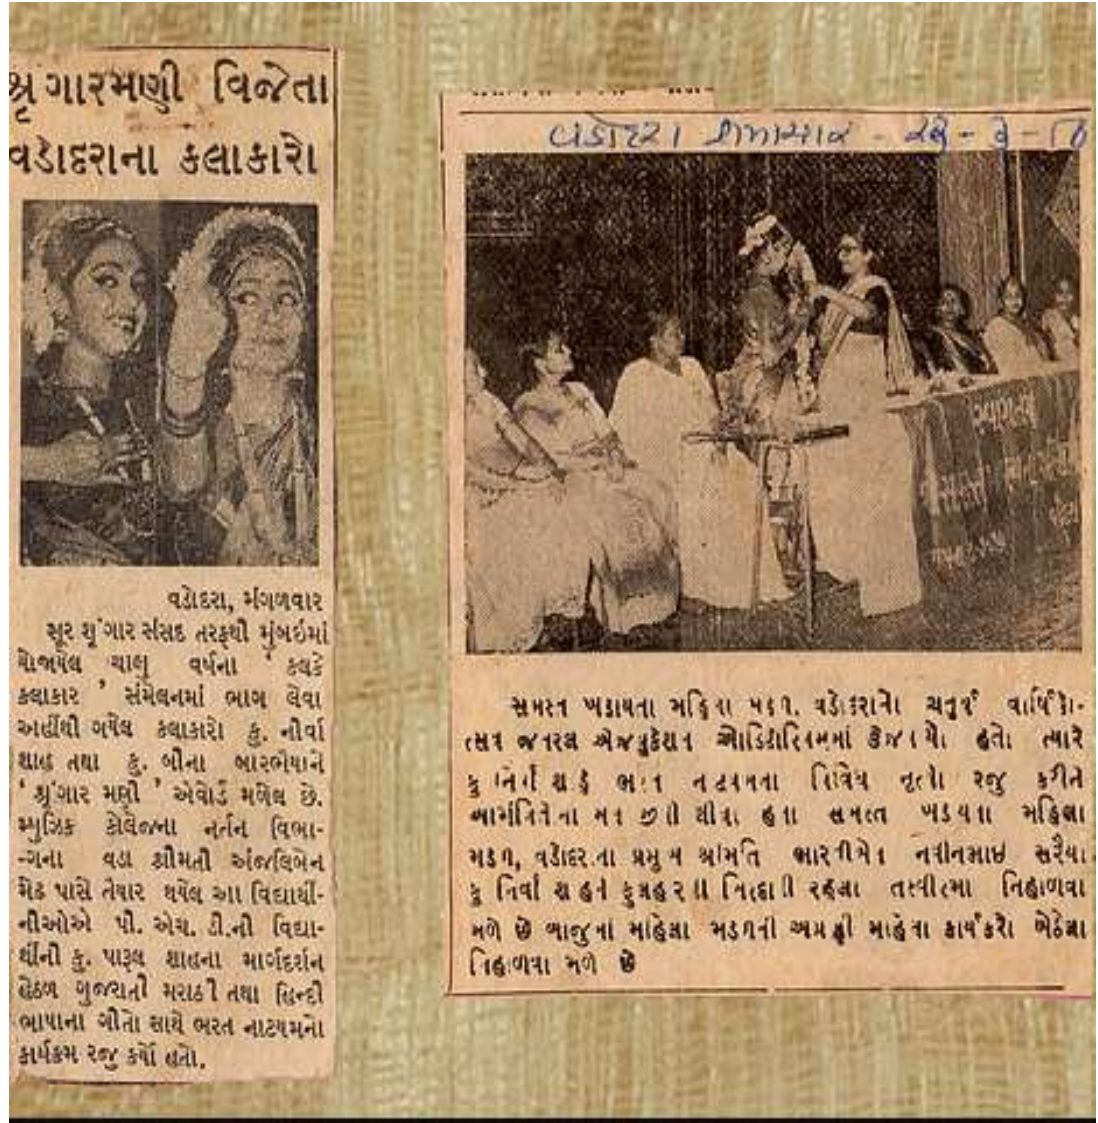 શ્રૃંગારમણી વિજેતા
વડોદરાના કલાકારો
વડોદરા, મંગળવાર
સૂર શૃંગાર સંસદ તરફથી મુંબઇમાં
યોજાયેલ ચાલુ વર્ષના ' કલકે
કલાકાર ' સંમેલનમાં ભાગ લેવા
અહીંથી ગયેલ કલાકારો કુ. નીર્વા
શાહ તથા કુ. બીના બારભૈયાને
' શ્રૃંગાર મણી ' એવોર્ડ મળેલ છે.
મ્યુઝિક કોલેજના નર્તન વિભા-
-ગના વડા શ્રીમતી અંજલિબેન
મેઢ પાસે તૈયાર થયેલ આ વિદ્યાર્થી-
નીઓએ પી. એચ. ડી.ની વિદ્યા-
ર્થીની કુ. પારૂલ શાહના માર્ગદર્શન
હેઠળ ગુજરાતી મરાઠી તથા હિન્દી
ભાષાના ગીતો સાથે ભરત નાટયમનો
કાર્યક્રમ રજુ કર્યો હતો.
વડોદરા સમાચાર
સમસ્ત ખડાયતા મહિલા મંડળ, વડોદરાનો ચતુર્થ વાર્ષિકો-
ત્સવ જનરલ એજ્યુકેશન ઓડિટોરિયમમાં ઉજવાયો હતો ત્યારે
કુ નિર્વા શાહે ભરત નાટયમના વિવિધ નૃત્યો રજુ કરીને
આમંત્રિતોના મન જીતી લીધા હતા સમસ્ત ખડાયતા મહિલા
મંડળ, વડોદરાના પ્રમુખ શ્રીમતિ ભારતીબેન નવીનભાઇ સરૈયા
કુ નિર્વા શાહને ફુલહારથી નિવાજી રહેલા તસ્વીરમા નિહાળવા
મળે છે બાજુમાં મહિલા મંડળની અગ્રણી મહિલા કાર્યકરો બેઠેલા
નિહાળવા મળે છે